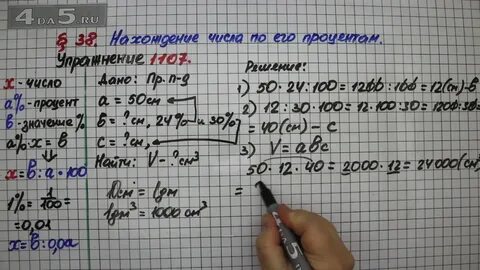 4DA5.RU
§ 38. Нахождение числа по его процентам.
Упражнение 1107.
x - число
a% - процент
b - значение %
a% · x = b
x = b : a · 100
1% = 1/100 =
= 0,01
x = b : 0,0a
Дано: Пр. п-д
a = 50 см
b = ? см, 24% и 30%
c = ? см,
Найти: V - ? см³
10 см = 1 дм
1 дм³ = 1000 см³
Решение:
1) 50 · 24 : 100 = 1200 : 100 = 12 (см) - b
2) 12 : 30 · 100 = 12 · 100 : 30 = 1200 : 30 =
= 40 (см) - c
3) V = abc
50 · 12 · 40 = 2000 · 12 = 24000 (см
=